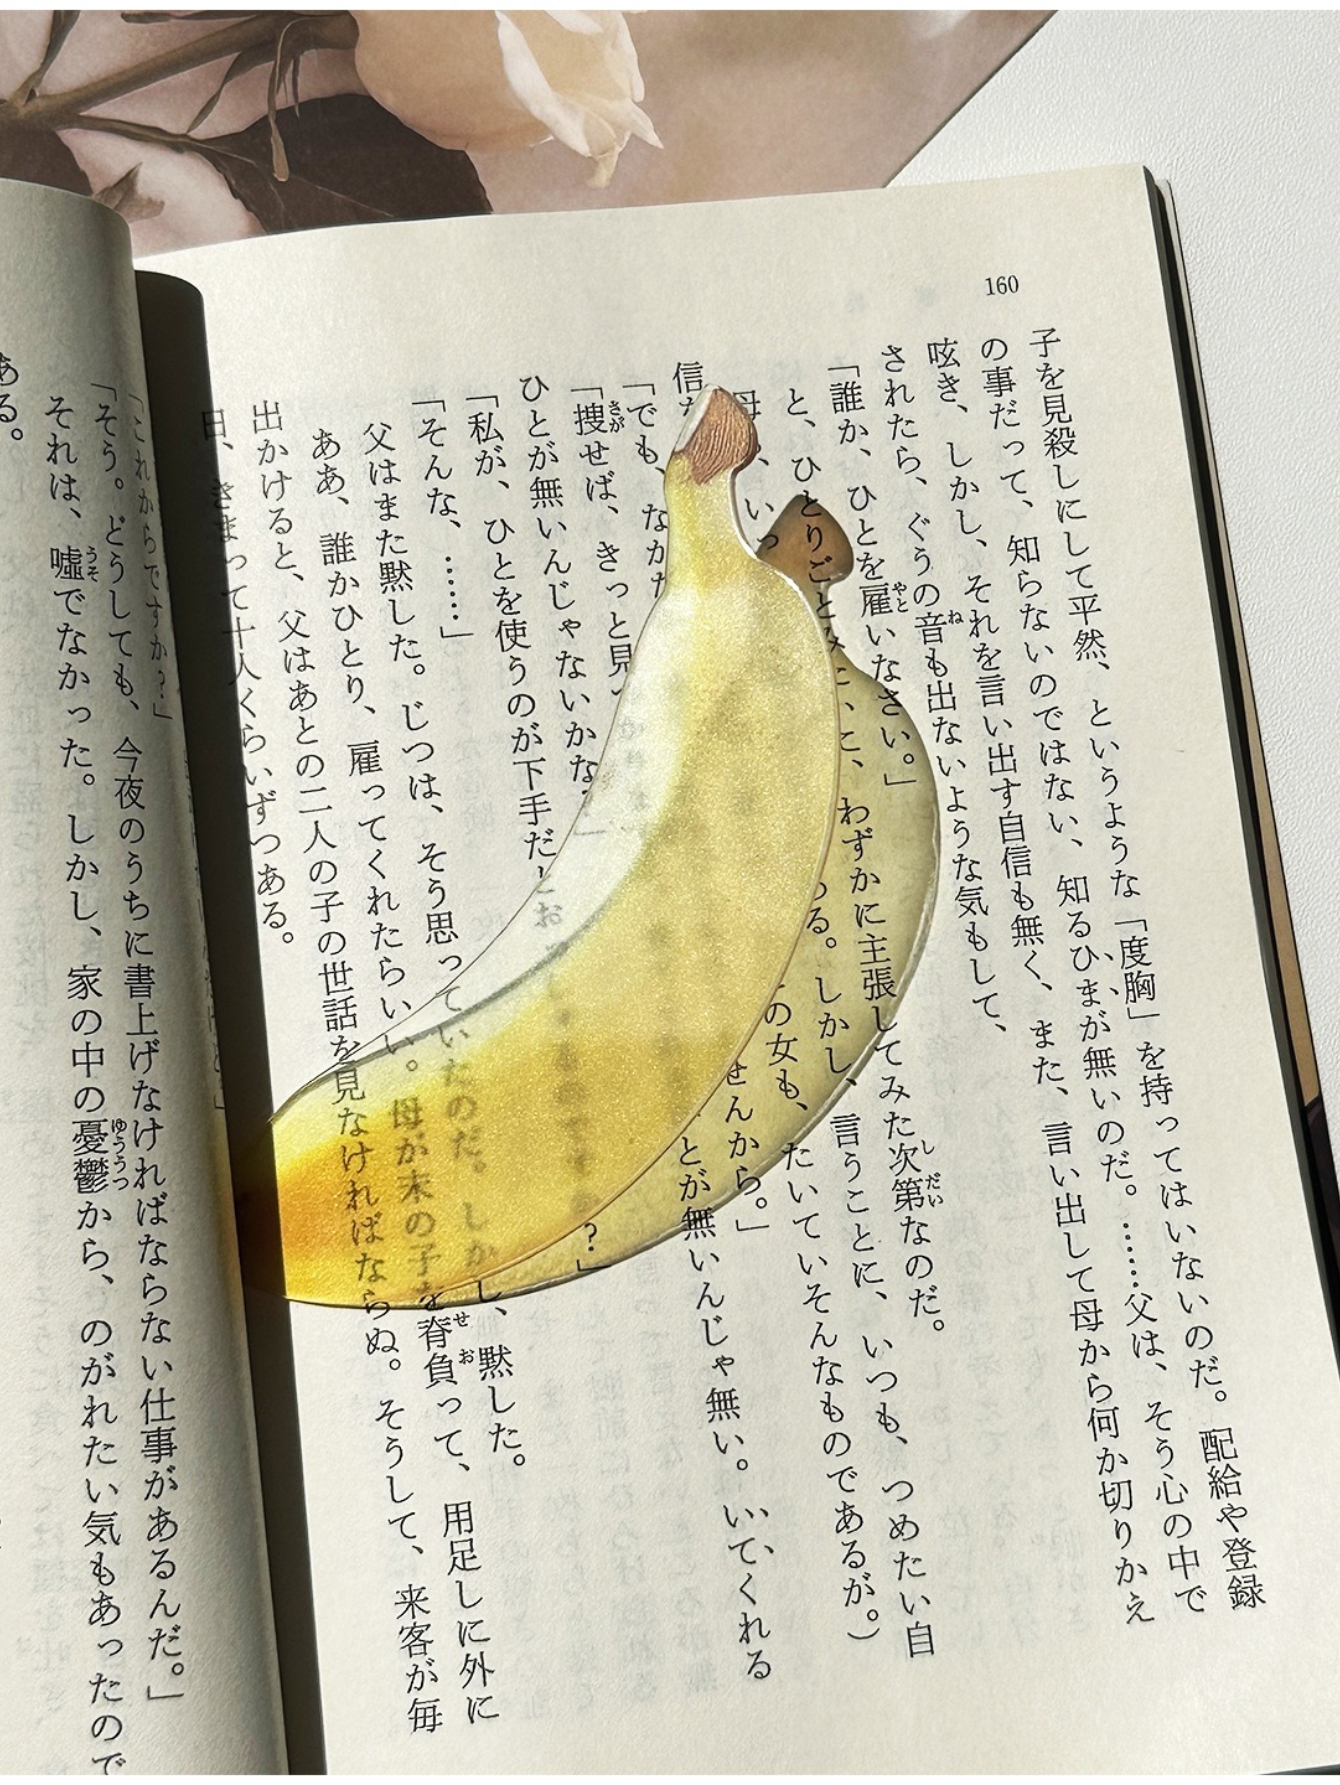 160
子を見殺しにして平然、というような「度胸」を持ってはいないのだ。配給や登録
の事だって、知らないのではない、知るひまが無いのだ。……父は、そう心の中で
呟き、しかし、それを言い出す自信も無く、また、言い出して母から何か切りかえ
されたら、ぐうの音も出ないような気もして、
「誰か、ひとを雇いなさい。」
と、ひとりごとみたいに、わずかに主張してみた次第なのだ。
母、いっ る。しかし、言うことに、いつも、つめたい自
信 の女も、たいていそんなものであるが。)
「でも、なか せんから。」
「捜せば、きっと見 とが無いんじゃ無い。いてくれる
ひとが無いんじゃないかな?」
「私が、ひとを使うのが下手だとお ?」
「そんな、……」
父はまた黙した。じつは、そう思っていたのだ。しかし、黙した。
ああ、誰かひとり、雇ってくれたらいい。母が末の子を脊負って、用足しに外に
出かけると、父はあとの二人の子の世話を見なければならぬ。そうして、来客が毎
日、きまって十人くらいずつある。
「これからですか?」
「そう。どうしても、今夜のうちに書上げなければならない仕事があるんだ。」
それは、嘘でなかった。しかし、家の中の憂鬱から、のがれたい気もあったので
ある。